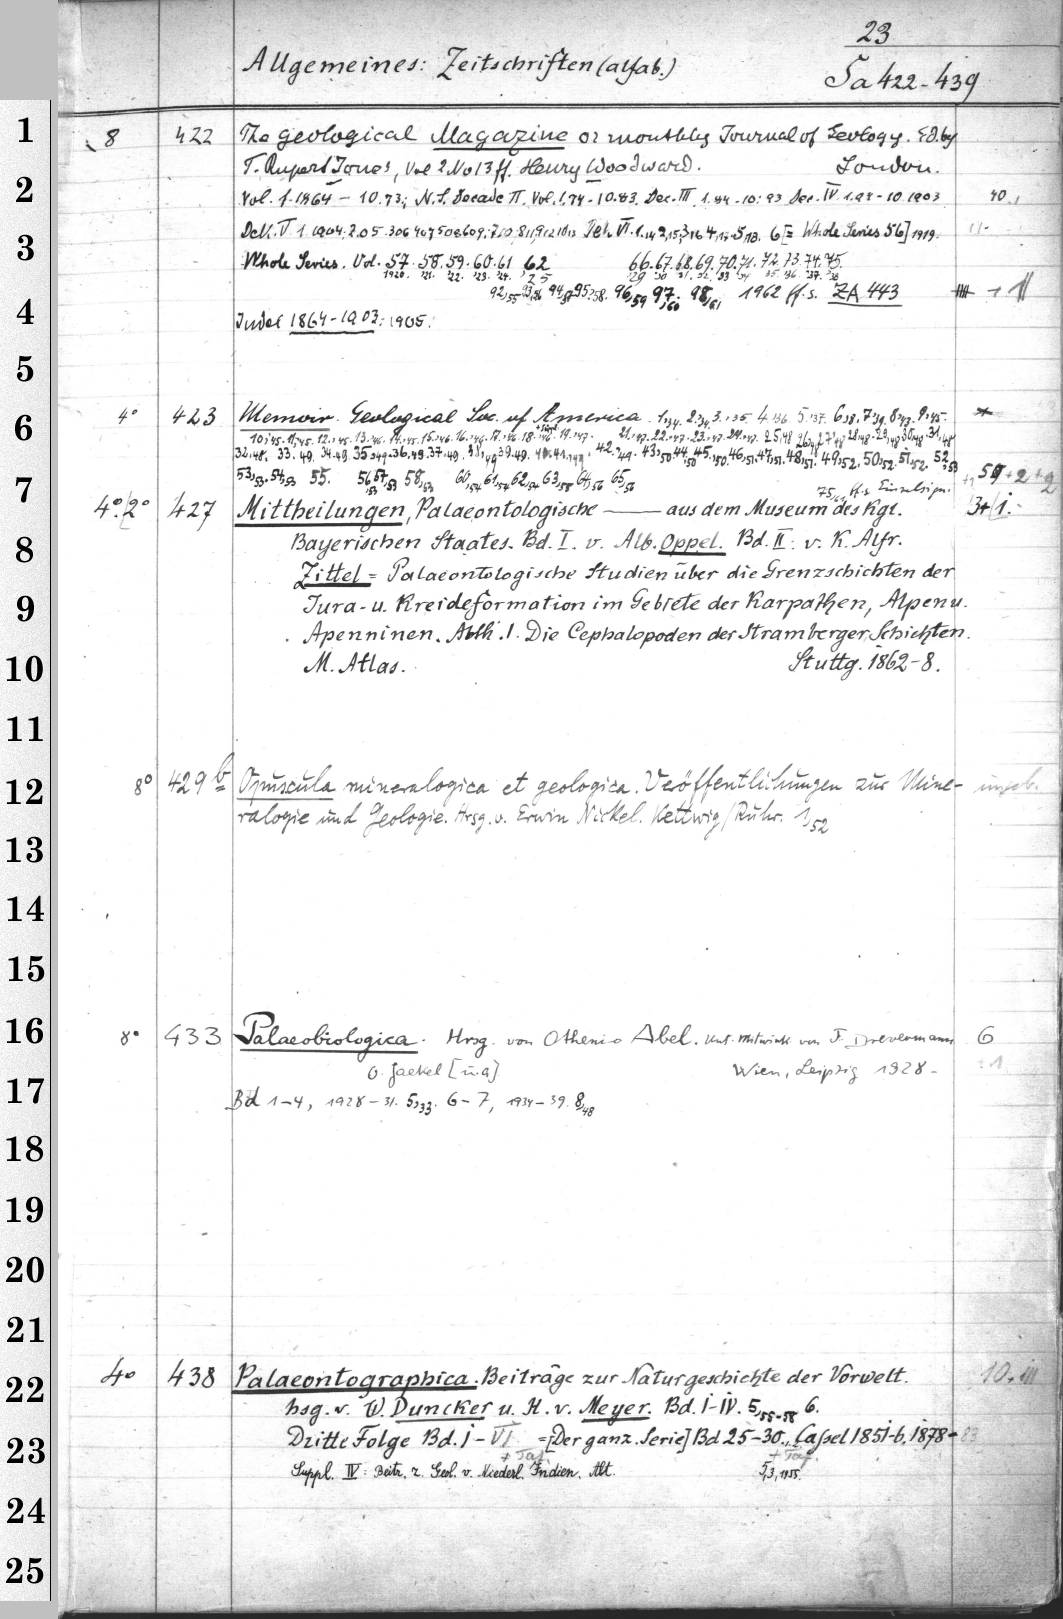 23
Allgemeines: Zeitschriften (alfab.)
Ta 422-439
1
8 422 The geological Magazine or monthly Journal of Geology. Ed. by
T. Rupert Jones, Vol 2 No 13 ff. Henry Woodward. London.
2
Vol. 1. 1864 - 10.73; N. S. Decade II. Vol. 1.74 - 10.83. Dec. III. 1.84 - 10.93 Dec. IV 1.94 - 10.1903 40.
3
Dek. V 1 1904. 2.05. 6 [= Whole Series 56] 1919.
Whole Series. Vol. 57. 58. 59. 60. 61 62 66. 67. 68. 69. 70. 71. 72. 73. 74. 75.
1920. '21. '22. '23. '24. 25 29 30 31. 32. 33 34 35 '36. '37. 38
4
94,57 95,58. 96,59 97,60 98,61 1962 ff. s. ZA 443
Index 1864-1903: 1905.
5
6
4° 423 Memoir. Geological Soc. of America. 1,34. 2,34. 3,35. 4,36 5,37. 6,38. 7,39. 8,43. 9,45.
10,45. 11,45. 12,45. 13,46. 14,45. 15,46. 16,46. 17,46 18,46. 19,47. 21,47. 22,47. 23,47. 24,47. 25,48
32,48. 33,49. 34,49 35,49. 36,49. 37,49. 39,49. 42,49. 43,50. 44,50 45,50. 46,51. 47,51. 48,51. 49,52. 50,52. 51,52. 52,53
7
53,53. 54,53 55. 56,53 57,53 58,53 60,54 61,54 62,54 63,55 64,56 65,56
75, ff. s. Einzelsign.
4°. 2° 427 Mittheilungen, Palaeontologische —— aus dem Museum des Kgl. 3+1.
8
Bayerischen Staates. Bd. I. v. Alb. Oppel. Bd. II: v. K. Alfr.
Zittel = Palaeontologische Studien über die Grenzschichten der
9
Jura- u. Kreideformation im Gebiete der Karpathen, Alpen u.
Apenninen. Abth. 1. Die Cephalopoden der Stramberger Schichten.
10
M. Atlas. Stuttg. 1862-8.
11
12
8° 429 b Opuscula mineralogica et geologica. Veröffentlichungen zur Mine- ungeb.
ralogie und Geologie. Hrsg. v. Erwin Nickel. Kettwig/Ruhr. 1,52
13
14
15
16
8° 433 Palaeobiologica. Hrsg. von Othenio Abel. unt. Mitwirk von F. Drevermann 6
17
O. Jaekel [u. a] Wien, Leipzig 1928-
Bd 1-4, 1928-31. 5,33. 6-7, 1934-39. 8,48
18
19
20
21
22
4° 438 Palaeontographica. Beiträge zur Naturgeschichte der Vorwelt. 10.
hsg. v. W. Duncker u. H. v. Meyer. Bd. I-IV. 5,55-58 6.
23
Dritte Folge Bd. I-VI = [Der ganz. Serie] Bd 25-30. Cassel 1851-6. 1878-83
+ Taf. + Taf.
Suppl. IV: Beitr. z. Geol. v. Niederl. Indien. Abt. 5,3, 1955.
24
25